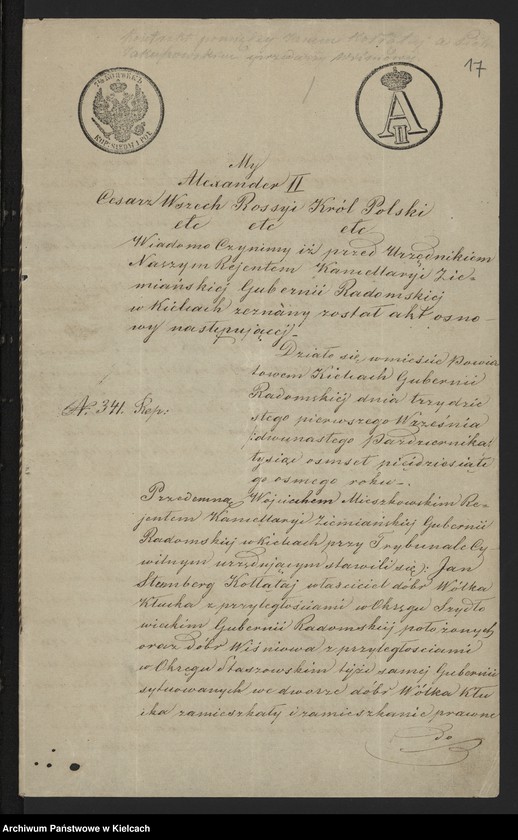 Kontrakt pomiędzy Janem Kołłątaj a
17
75 КОПѢЕКЪ
KOP. SIEDM I PÓŁ
A II
My
Alexander II
Cesarz Wszech Rossyi Król Polski
etc etc etc
Wiadomo Czynimy iż przed Urzędnikiem
Naszym Rejentem Kancellaryi Zie-
miańskiéj Gubernii Radomskiéj
w Kielcach zeznany został akt osno-
wy następującéj.-
Działo się w mieście Powia
towem Kielcach Gubernii
Radomskiéj dnia trzydzie
stego pierwszego Września
/:dwunastego Października:/
tysiąc osmset pięćdziesiąte
go osmego roku.-
N. 341. Rep:
Przedemną Wojciechem Mieszkowskim Re-
jentem Kancellaryi Ziemiańskiéj Gubernii
Radomskiéj w Kielcach przy Trybunale Cy-
wilnym urzędującym stawili się: Jan
Stumberg Kołłątaj właściciel dóbr Wólka
Kłucka z przyległościami w Okręgu Szydło
wieckim Gubernii Radomskiéj położonych
oraz dóbr Wiśniowa z przyległościami
w Okręgu Staszowskim téjże saméj Gubernii
sytuowanych we dworze dóbr Wólka Kłu
cka zamieszkały i zamieszkanie prawne
do
Archiwum Państwowe w Kielcach